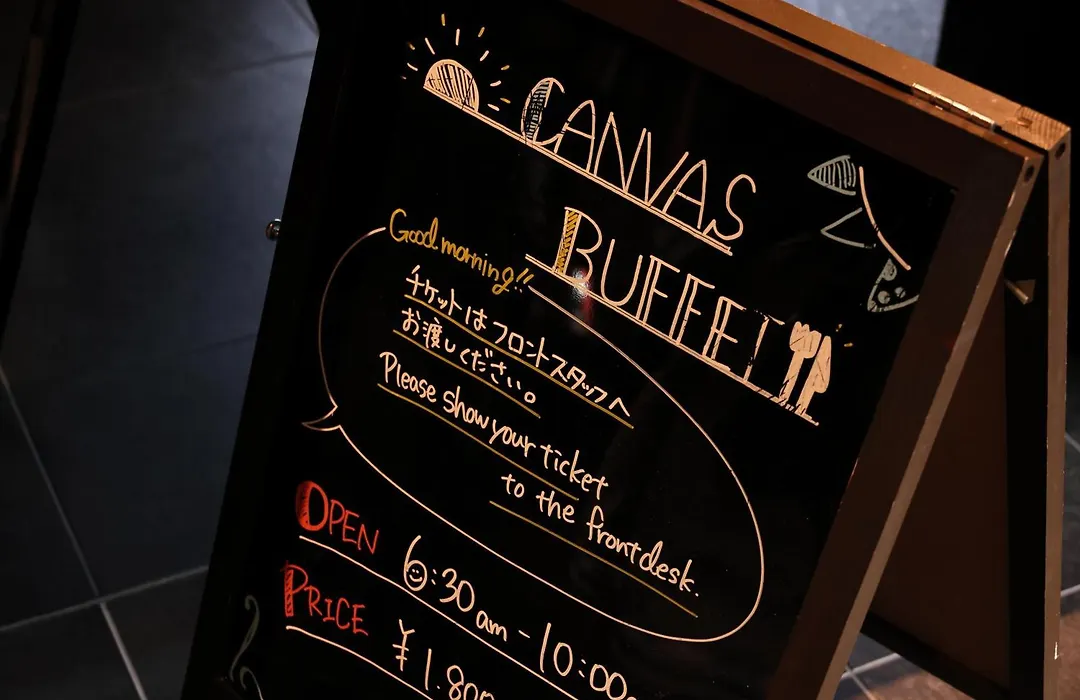 CANVAS
BUFFET
Good morning!!
チケットはフロントスタッフへ
お渡しください。
Please show your ticket
to the frontdesk.
OPEN 6:30am - 10:00a
PRICE ¥1,800